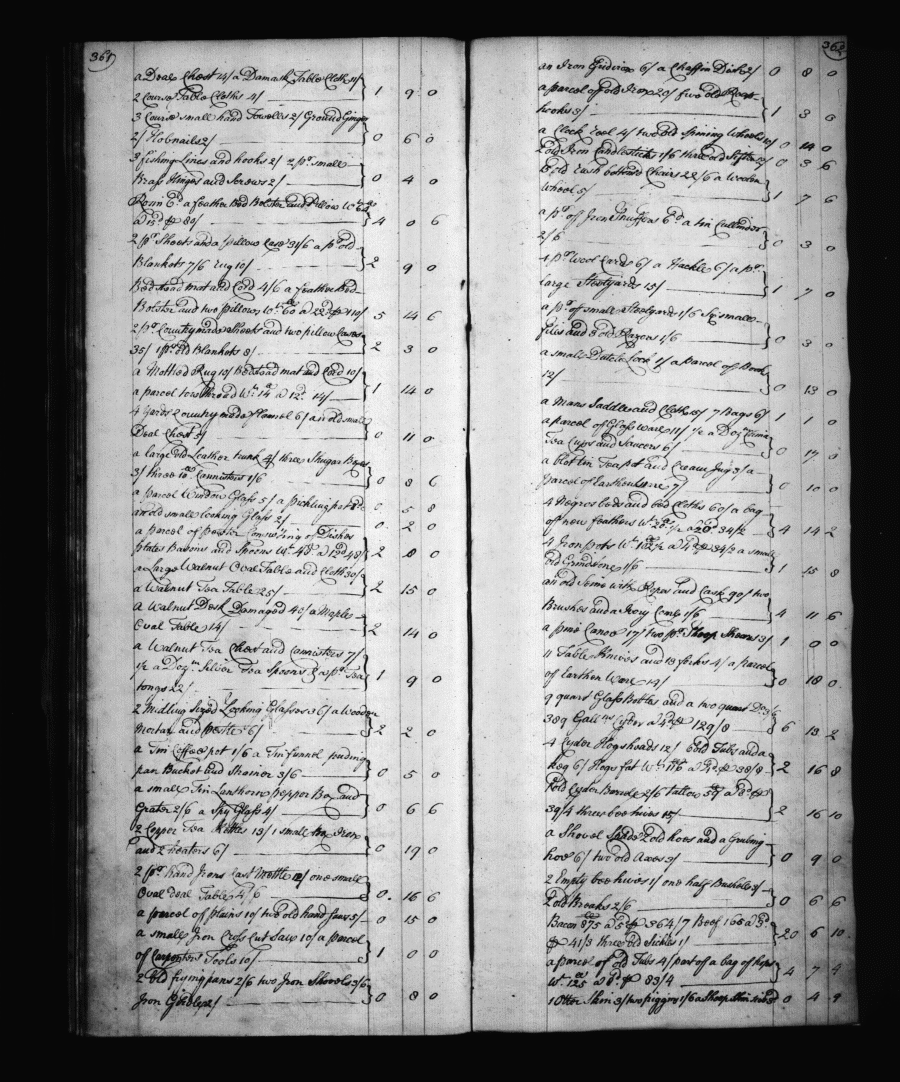 361
a Deal Chest 24/ a Damask Table Cloth 1/
2 Course Table Cloths 4/ } 1 9 0
3 Course small hand Towells 2/ Ground Ginger
2/ Hobnails 2/ } 0 6 0
3 fishing Lines and hooks 2/ 2 pr. small
Brass Hinges and Screws 2/ } 0 4 0
Room Cd. a feather Bed Bolster and Pillow Wt.
a 15d. 80/ } 4 0 6
2 pr. Sheets and a pillow Case 31/6 a pr. old
Blankets 7/6 Rug 10/ } 2 9 0
Bedstead mat and Cord 4/6 a feather Bed
Bolster and two pillows Wt. 60 a 22d. 110/ } 5 14 6
2 pr. Country made Sheets and two pillow Cases
35/ 1 pr. old Blankets 8/ } 2 3 0
a Motled Rug 10/ Bedstead mat and Cord 10/
a parcel tow thread Wt. 14 a 12d. 14/ } 1 14 0
4 Yards Country made flannel 6/ an old small
Deal Chest 5/ } 0 11 0
a large old Leather trunk 4/ three Shugar Boxes
3/ three Cannisters 1/6 } 0 8 6
a parcel Window Glass 5/ a pickling pot 8d. 0 5 8
an old small looking Glass 2/ 0 2 0
a parcel of pewter Consisting of Dishes
plates Basons and Spoons Wt. 48 a 12d. 48/ } 2 8 0
a Large Walnut Oval Table and Cloth 30/
a Walnut Tea Table 25/ } 2 15 0
a Walnut Desk Damaged 40/ a Maple
Oval Table 14/ } 2 14 0
a Walnut Tea Chest and Cannisters 7/
1/2 a Dozn. Silver Tea Spoons & a pr. Tea
tongs 22/ } 1 9 0
2 Midling sized Looking Glasses 36/ a Wooden
Mortar and pestle 6/ } 2 2 0
a Tin Coffee pot 1/6 a Tin funnel puding
pan Bucket and Strainer 3/6 } 0 5 0
a small Tin Lanthorn pepper Box and
Grater 2/6 a Spy Glass 4/ } 0 6 6
2 Copper Tea Kettles 13/ 1 small Box Iron
and 2 heaters 6/ } 0 19 0
2 pr. hand Irons Cast Mettle 12/ one small
Oval deal Table 4/6 } 0 16 6
a parcel of plains 10/ two old hand saws 5/ 0 15 0
a small Iron Cross Cut Saw 10/ a parcel
of Carpenters Tools 10/ } 1 0 0
2 Old frying pans 2/6 two Iron Shovels 3/6
Iron Gridle 2/ } 0 8 0
an Iron Gridiron 6/ a Chaffin Dish 2/ 0 8 0
a parcel of old Iron 20/ two old
hooks 3/ } 1 3 0
a Clock Reel 4/ two old Spining Wheels 10/ 0 14 0
2 old Iron Candlesticks 1/6 three old Sifters 2/ 0 3 6
old Rush bottom Chairs 22/6 a Woolen
Wheel 5/ } 1 7 6
a pr. off Iron Snuffers 6d. a tin Cullender
2/6 } 0 3 0
4 pr. Wool Cards 6/ a Hackle 6/ a pr.
large Steelyards 15/ } 1 7 0
a pr. of small Steelyards 1/6 Six small
files and 2 old Razors 1/6 } 0 3 0
a small Dutch Lock 1/ a parcel of Books
12/ } 0 13 0
a Mans Saddle and Cloth 15/ 7 Bags 6/ 1 1 0
a parcel of Glass Ware 11/ 1/2 a Dozn. China
Tea Cups and Saucers 6/ } 0 17 0
a blot tin Tea pot and Cream Jug 3/ a
parcel of Earthenware 7/ } 0 10 0
4 Negros beds and bed Cloths 60/ a bag
off new feathers Wt. 20 1/2 a 20d. 34/2 } 4 14 2
4 Iron pots Wt. 102 1/2 a 4d. 34/2 a small
old Grindstone 1/6 } 1 15 8
an old Seine with Ropes and Cask 90/ two
Brushes and a Ivory Comb 1/6 } 4 11 6
a pine Canoe 17/ two pr. Sheep Shears 3/ 1 0 0
11 Table Knives and 13 forks 4/ a parcel
of Earthen Ware 14/ } 0 18 0
9 quart Glass Bottles and a two quart Do. 3/6
389 Galls. Cyder a 4d. 129/8 } 6 13 2
4 Cyder Hogsheads 12/ 6 old Tubs and a
keg 6/ Hogs fat Wt. 116 a 4d. 38/8 } 2 16 8
2 old Cyder Barrels 2/6 tallow 59 a 8d.
39/4 three bee hives 15/ } 2 16 10
a Shovel Spade 2 old hoes and a Grubing
hoe 6/ two old Axes 3/ } 0 9 0
2 Empty bee hives 1/ one half Bushel 3/
2 old Breaks 2/6 } 0 6 6
Bacon 875 a 5d. 364/7 Beef 165 a 3d.
41/3 three old Sickles 1/ } 20 6 10
a parcel of old Tubs 4/ part off a bag of hops
Wt. 125 a 8d. 83/4 } 4 7 4
1 Otter Skin 3/ two piggins 1/6 a Sheep Skin 0 4 9